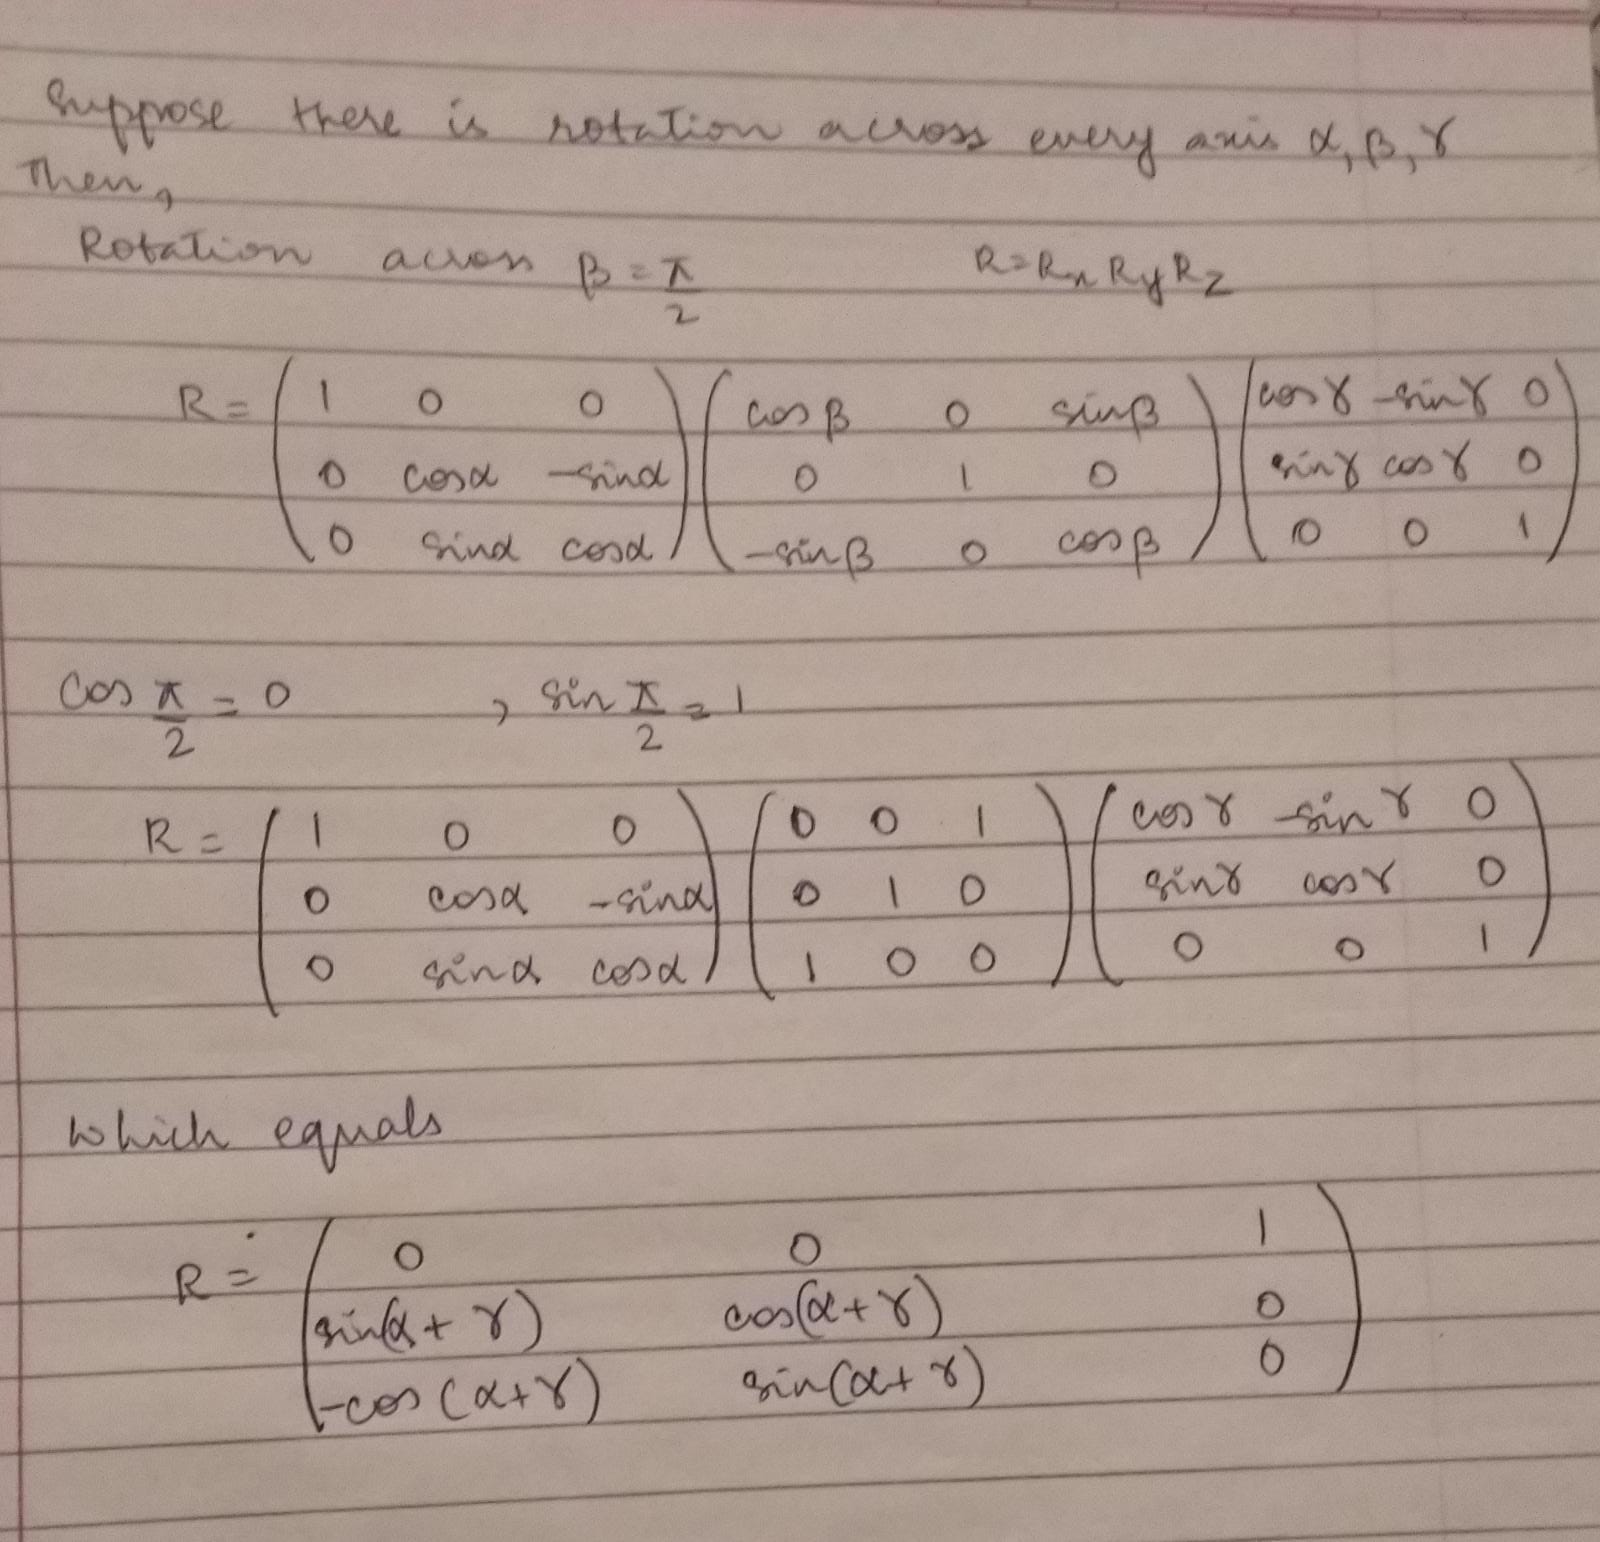 Suppose there is rotation across every axis α, β, γ
Then,
Rotation across β = π/2 R = Rx Ry Rz
R = (1 0 0; 0 cosα -sinα; 0 sinα cosα) (cosβ 0 sinβ; 0 1 0; -sinβ 0 cosβ) (cosγ -sinγ 0; sinγ cosγ 0; 0 0 1)
cos π/2 = 0 , sin π/2 = 1
R = (1 0 0; 0 cosα -sinα; 0 sinα cosα) (0 0 1; 0 1 0; 1 0 0) (cosγ -sinγ 0; sinγ cosγ 0; 0 0 1)
which equals
R = (0 0 1; sin(α+γ) cos(α+γ) 0; -cos(α+γ) sin(α+γ) 0)